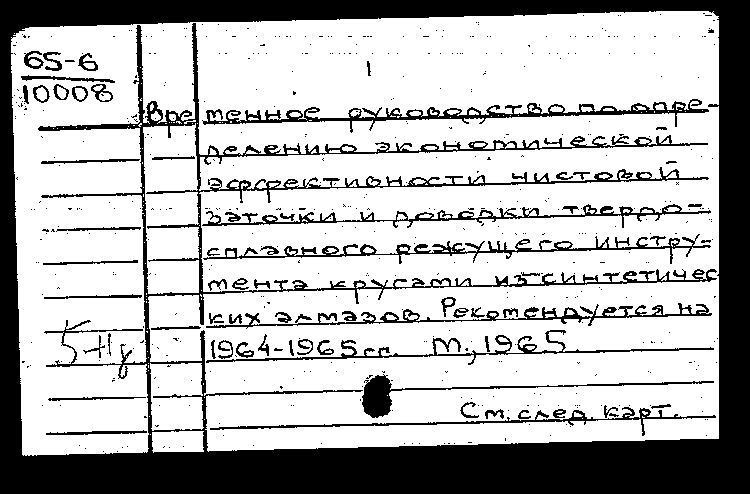 65-6
10008
1
Временное руководство по опре-
делению экономической
эффективности чистовой
заточки и доводки твердо-
сплавного режущего инстру-
мента кругами из синтетичес
ких алмазов. Рекомендуется на
1964-1965 гг. М., 1965
См. след карт.